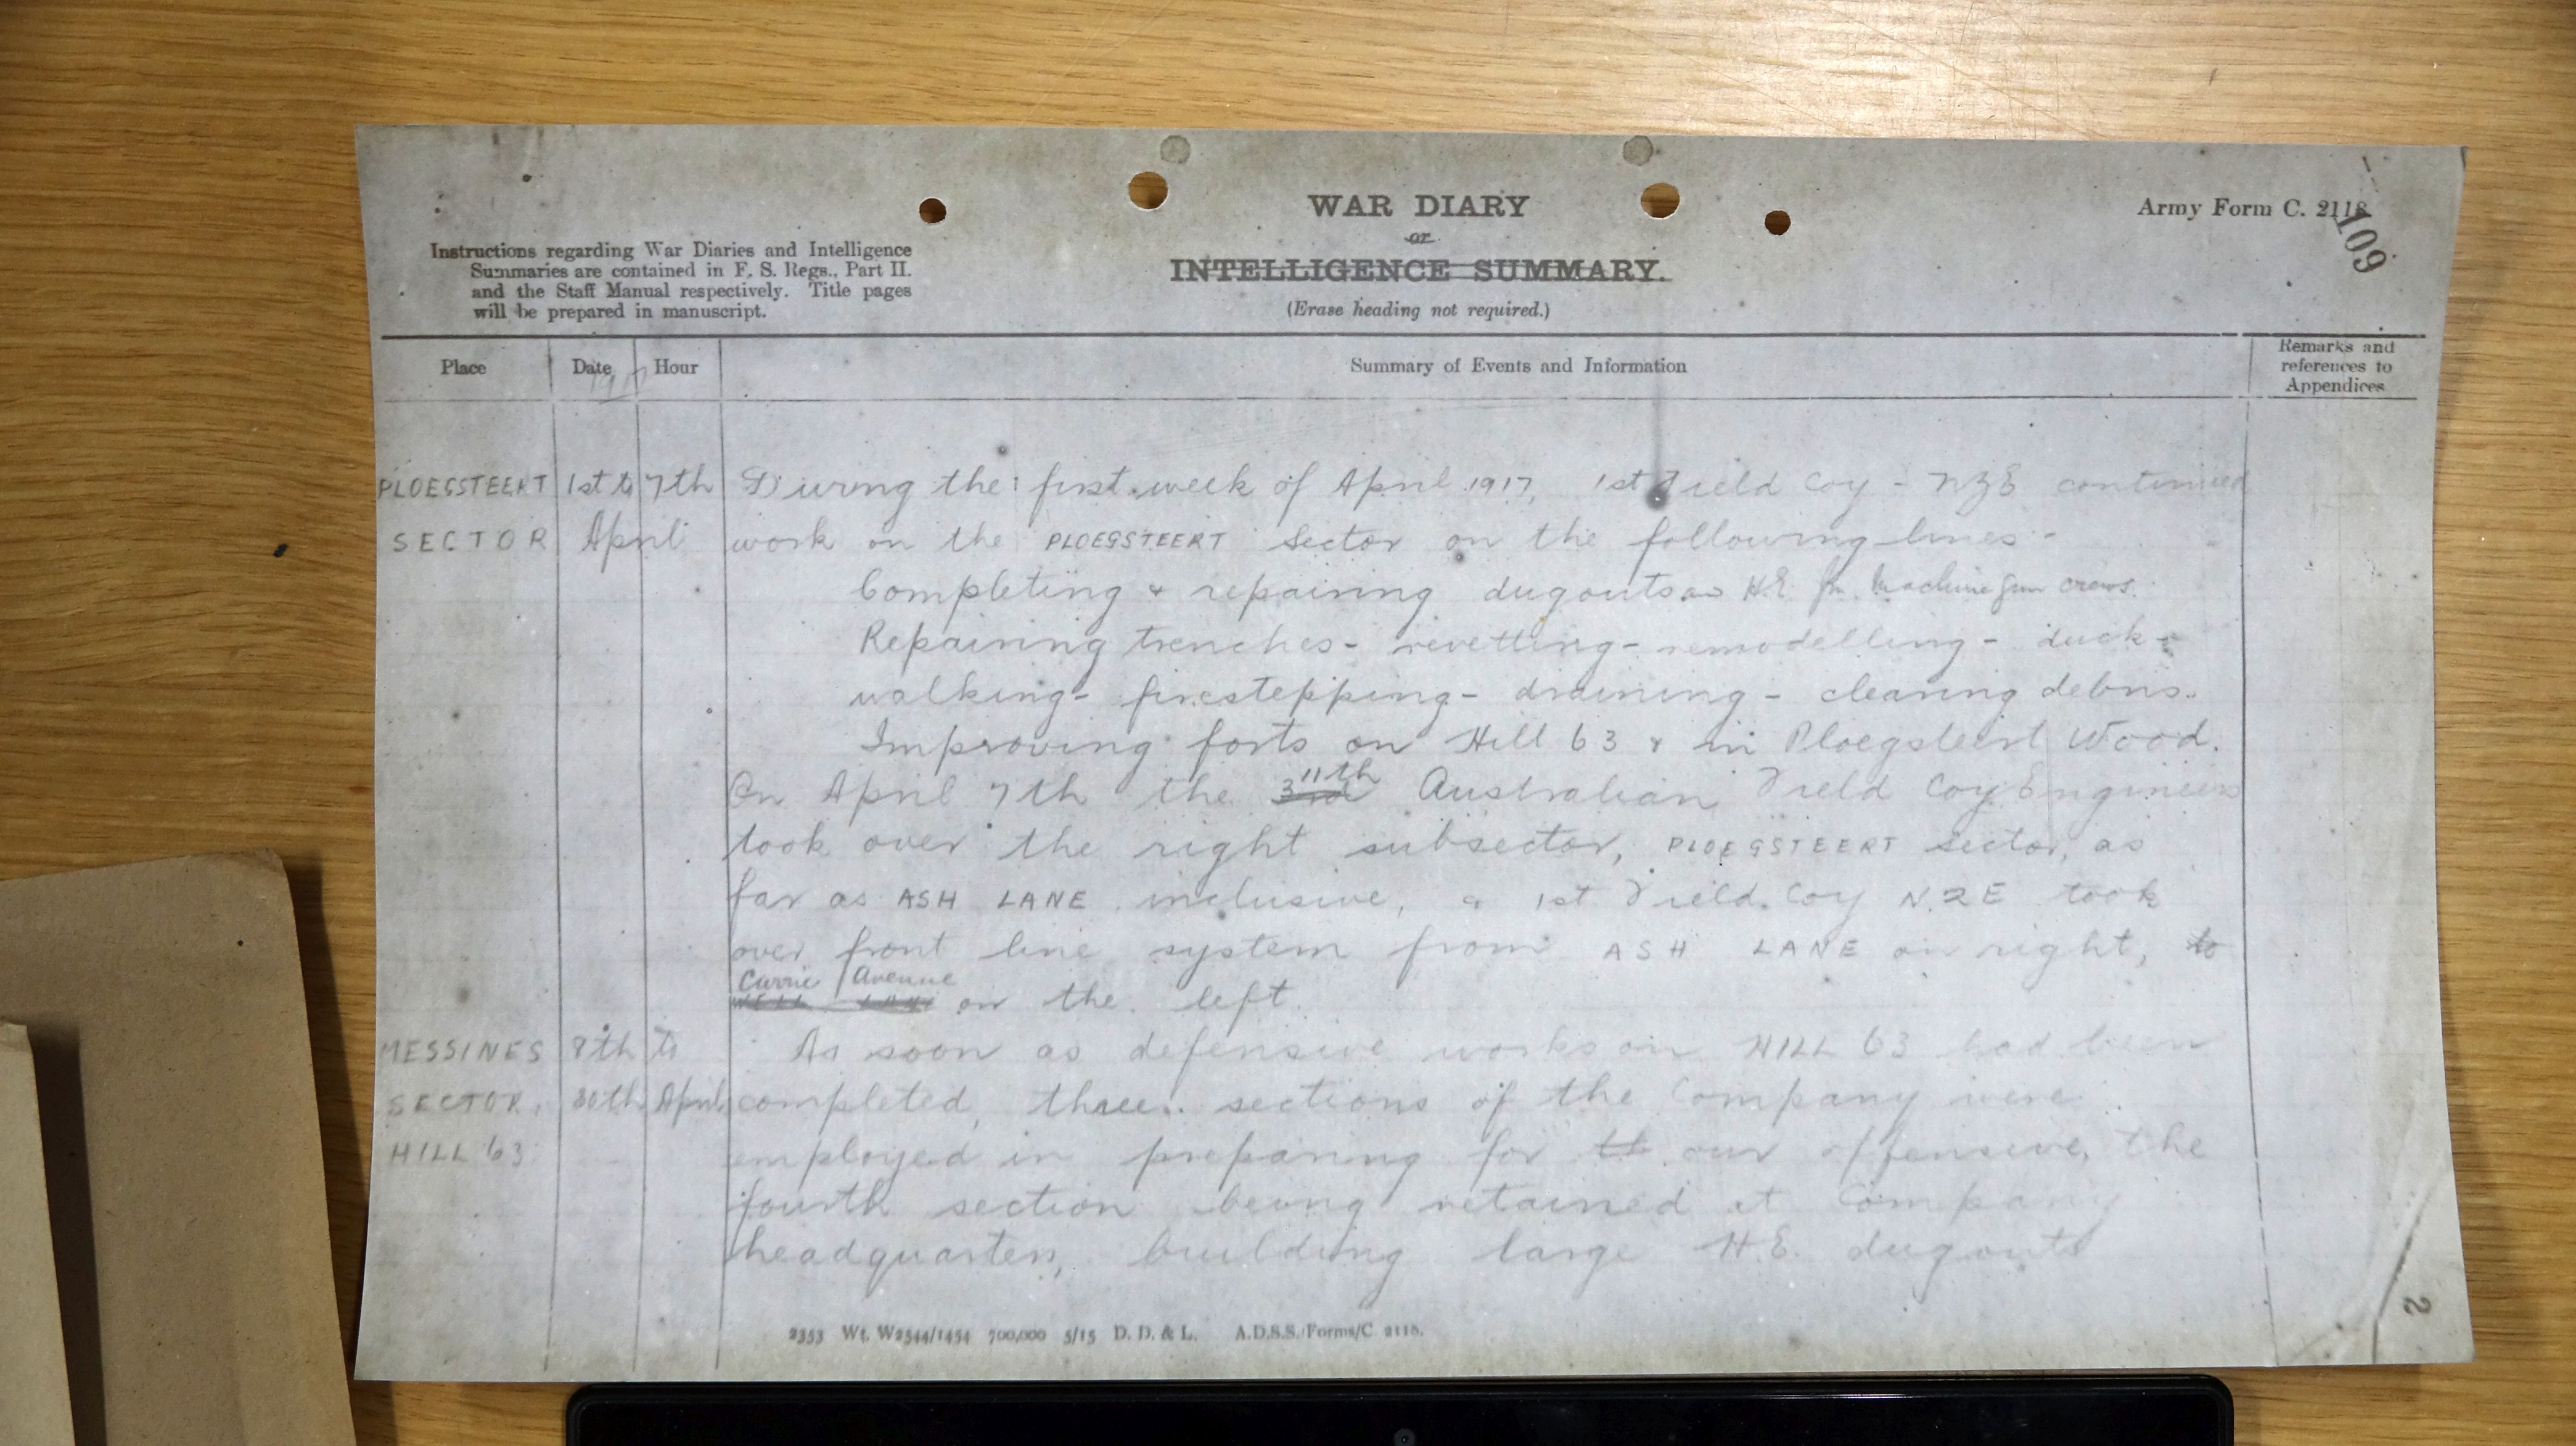 WAR DIARY
or
INTELLIGENCE SUMMARY.
(Erase heading not required.)
Army Form C. 2118
109
Instructions regarding War Diaries and Intelligence
Summaries are contained in F. S. Regs., Part II.
and the Staff Manual respectively. Title pages
will be prepared in manuscript.
Place Date Hour Summary of Events and Information Remarks and references to Appendices
1917
PLOEGSTEERT 1st to 7th During the first week of April 1917, 1st Field Coy - NZE continued
SECTOR April work on the PLOEGSTEERT Sector on the following lines -
Completing & repairing dugouts H.E. for Machine gun crews.
Repairing trenches - revetting - remodelling - duck-
walking - firestepping - draining - clearing debris.
Improving forts on Hill 63 & in Ploegsteert Wood.
On April 7th the 3rd 11th Australian Field Coy Engineers
took over the right subsector, PLOEGSTEERT sector, as
far as ASH LANE inclusive, & 1st Field Coy N.Z E took
over front line system from ASH LANE on right, to
Currie Avenue
on the left.
MESSINES 8th to As soon as defensive works on HILL 63 had been
SECTOR, 30th April completed, three sections of the Company were
HILL 63. employed in preparing for our offensive, the
fourth section being retained at Company
headquarters, building large H.E. dugouts
2353 Wt. W2544/1454 700,000 5/15 D. D. & L. A.D.S.S./Forms/C 2118.
2